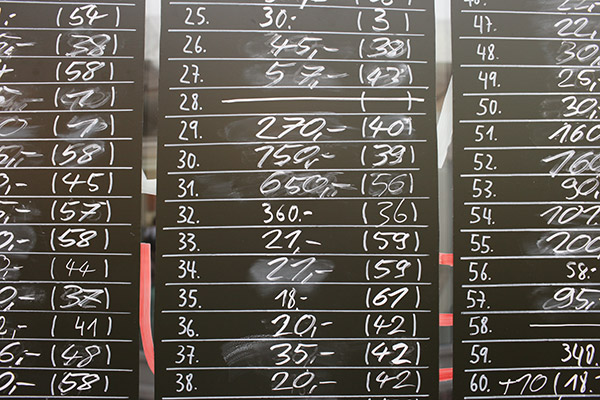 (54)
(38)
(58)
(58)
,- (45)
(57)
,- (58)
(44)
,- (37)
,- (41)
,- (48)
0,- (58)
25. 30:- (3)
26. 45,- (38)
27. 57,- (43)
28.
29. 270,- (40)
30. 150,- (39)
31. 650,- (56)
32. 360.- (36)
33. 21,- (59)
34. 21,- (59)
35. 18.- (61)
36. 20,- (42)
37. 35,- (42)
38. 20,- (42)
47. 22,
48. 30
49. 25,
50. 30
51. 160
52. 160
53. 90,
54. 101
55. 200
56. 58:-
57. 95,-
58.
59. 340.
60. +10 (18.